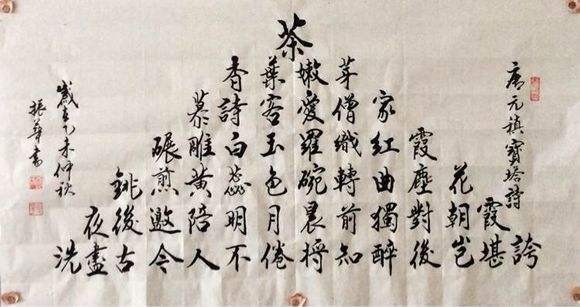 唐元稹寶塔詩
茶
香葉嫩芽
慕詩客愛僧家
碾雕白玉羅織紅霞
銚煎黃蕊色碗轉曲塵花
夜後邀陪明月晨前獨對朝霞
洗盡古今人不倦將知醉後豈堪誇
歲在乙未仲秋
振華書